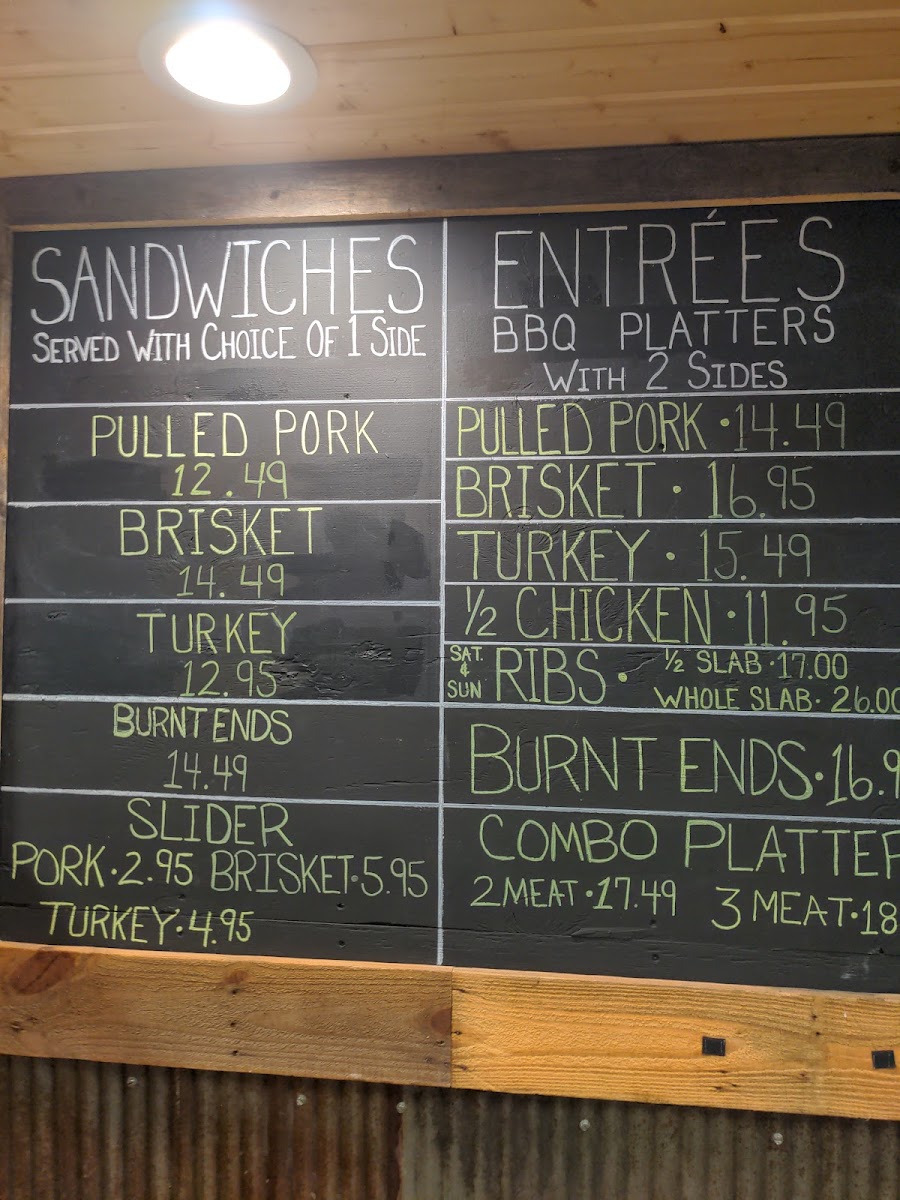 SANDWICHES
SERVED WITH CHOICE OF 1 SIDE
PULLED PORK
12.49
BRISKET
14.49
TURKEY
12.95
BURNT ENDS
14.49
SLIDER
PORK·2.95 BRISKET·5.95
TURKEY·4.95
ENTRÉES
BBQ PLATTERS
WITH 2 SIDES
PULLED PORK·14.49
BRISKET · 16.95
TURKEY · 15.49
1/2 CHICKEN·11.95
SAT. & SUN RIBS· 1/2 SLAB·17.00
WHOLE SLAB· 26.00
BURNT ENDS·16.9
COMBO PLATTER
2 MEAT·17.49 3 MEAT·18